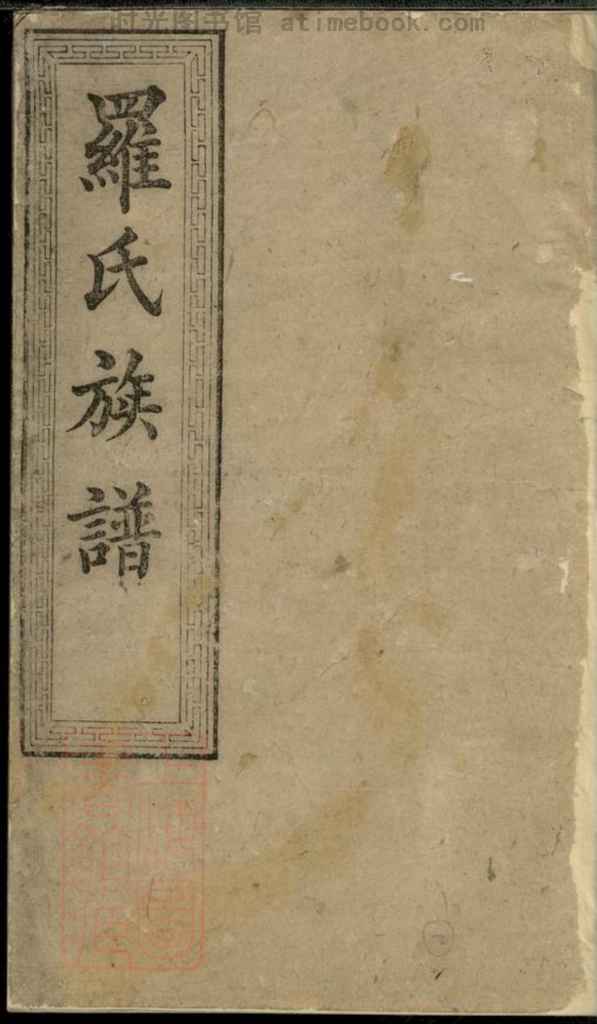 时光图书馆 - atimebook.com
羅氏族譜